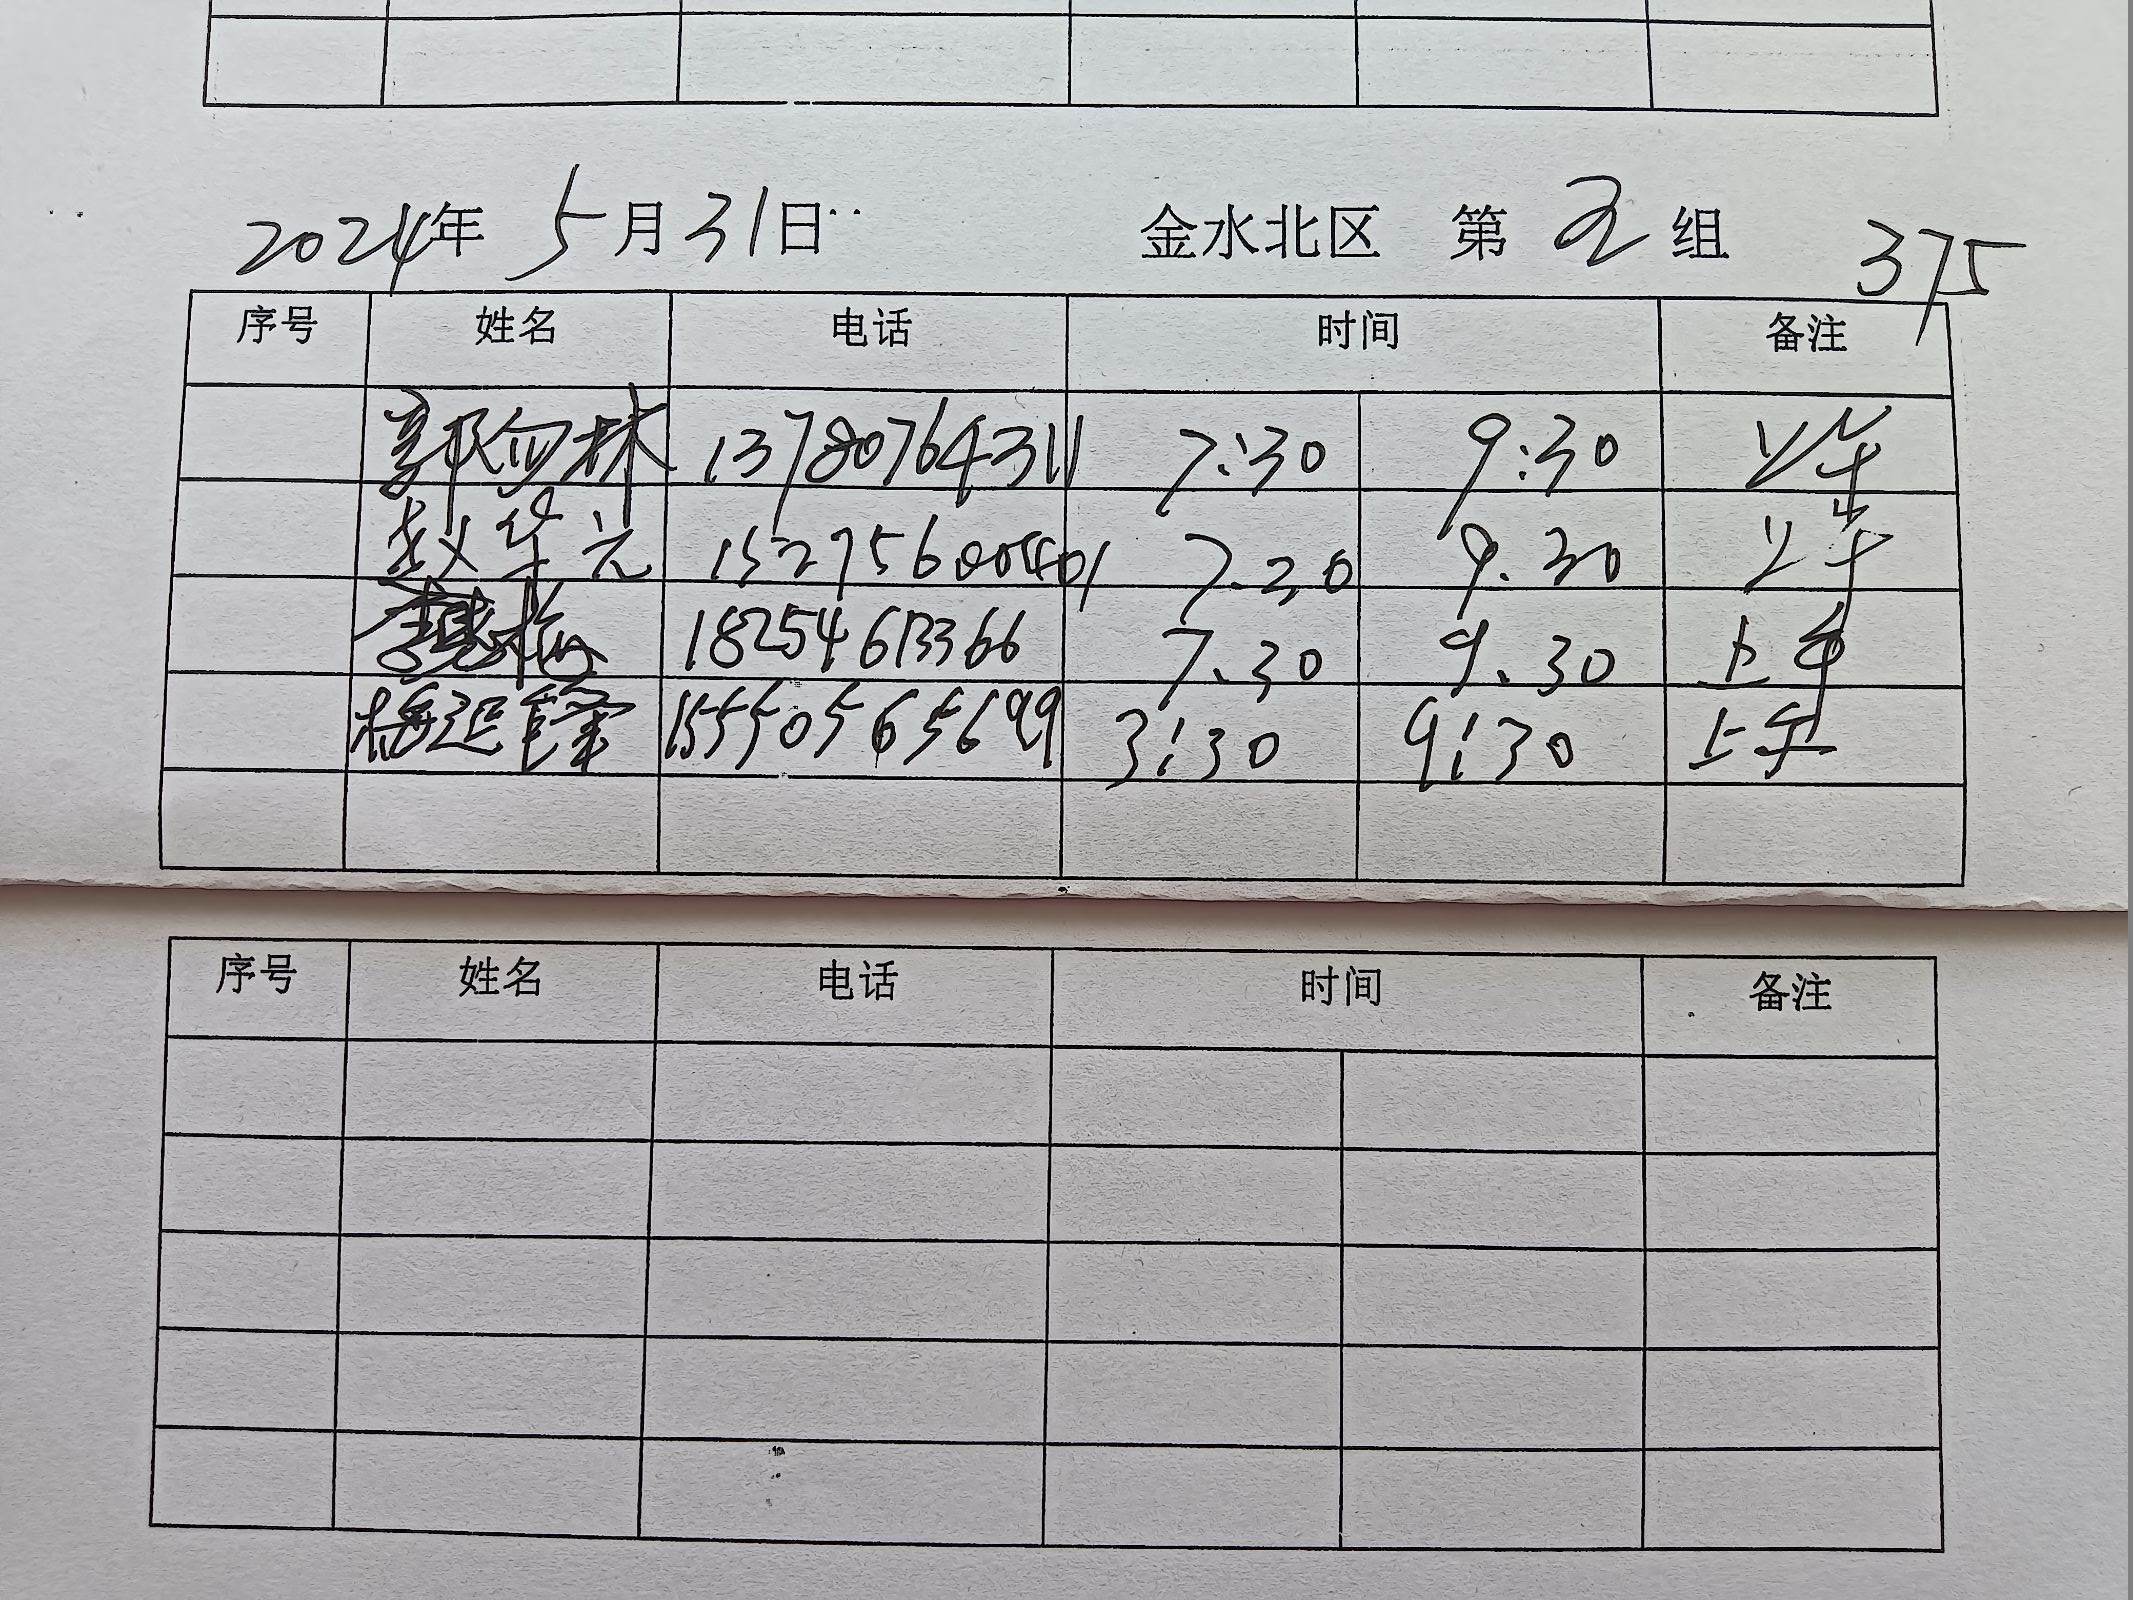 2024年 5月31日 金水北区 第2组 375
序号 姓名 电话 时间 备注
郭 林 13780764311 7:30 9:30 上午
赵华元 7.30 9.30 上午
李 梅 18254613366 7.30 9.30 上午
梅延 15550565699 3:30 9:30 上午
序号 姓名 电话 时间 备注